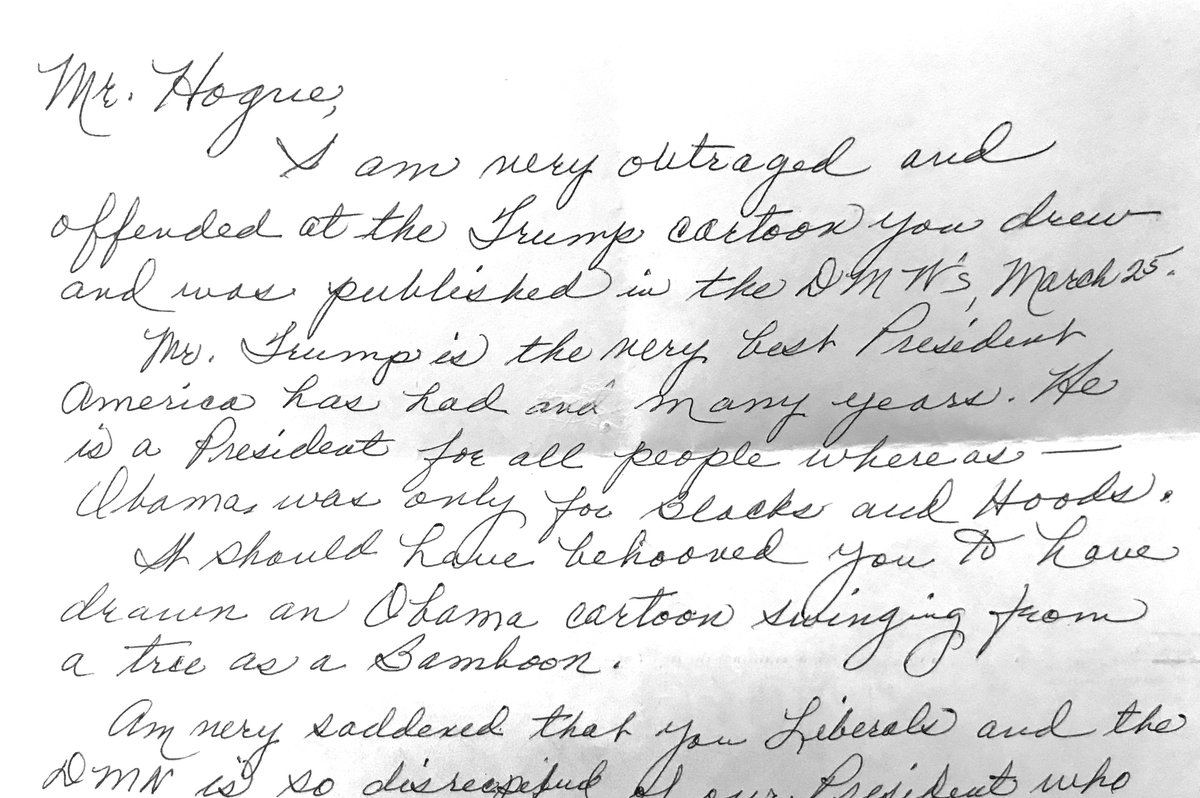 Mr. Hogue,
I am very outraged and
offended at the Trump cartoon you drew
and was published in the DMN's, March 25.
Mr. Trump is the very best President
America has had and many years. He
is a President for all people where as —
Obama, was only for Blacks and Hoods.
It should have behooved you to have
drawn an Obama cartoon swinging from
a tree as a Bamboon.
Am very saddened that you Liberals and the
DMN is so disrespectful of our President who